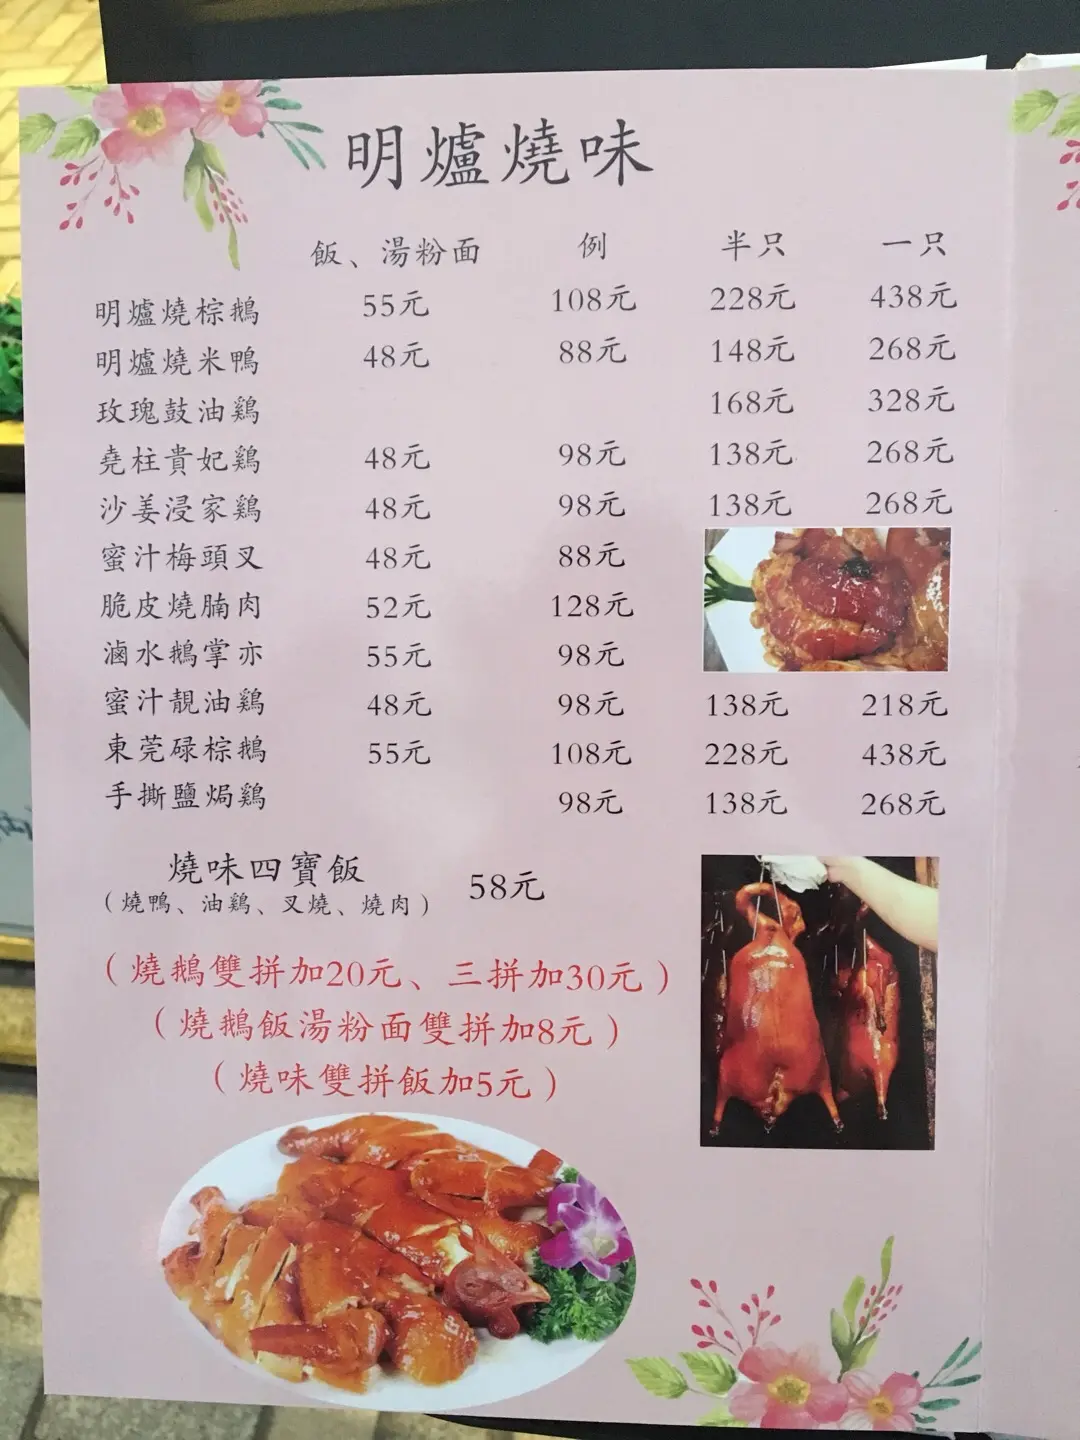 明爐燒味
飯、湯粉面 例 半只 一只
明爐燒棕鵝 55元 108元 228元 438元
明爐燒米鴨 48元 88元 148元 268元
玫瑰鼓油鷄 168元 328元
堯柱貴妃鷄 48元 98元 138元 268元
沙姜浸家鷄 48元 98元 138元 268元
蜜汁梅頭叉 48元 88元
脆皮燒腩肉 52元 128元
滷水鵝掌亦 55元 98元
蜜汁靚油鷄 48元 98元 138元 218元
東莞碌棕鵝 55元 108元 228元 438元
手撕鹽焗鷄 98元 138元 268元
燒味四寶飯 58元
（燒鴨、油鷄、叉燒、燒肉）
（燒鵝雙拼加20元、三拼加30元）
（燒鵝飯湯粉面雙拼加8元）
（燒味雙拼飯加5元）